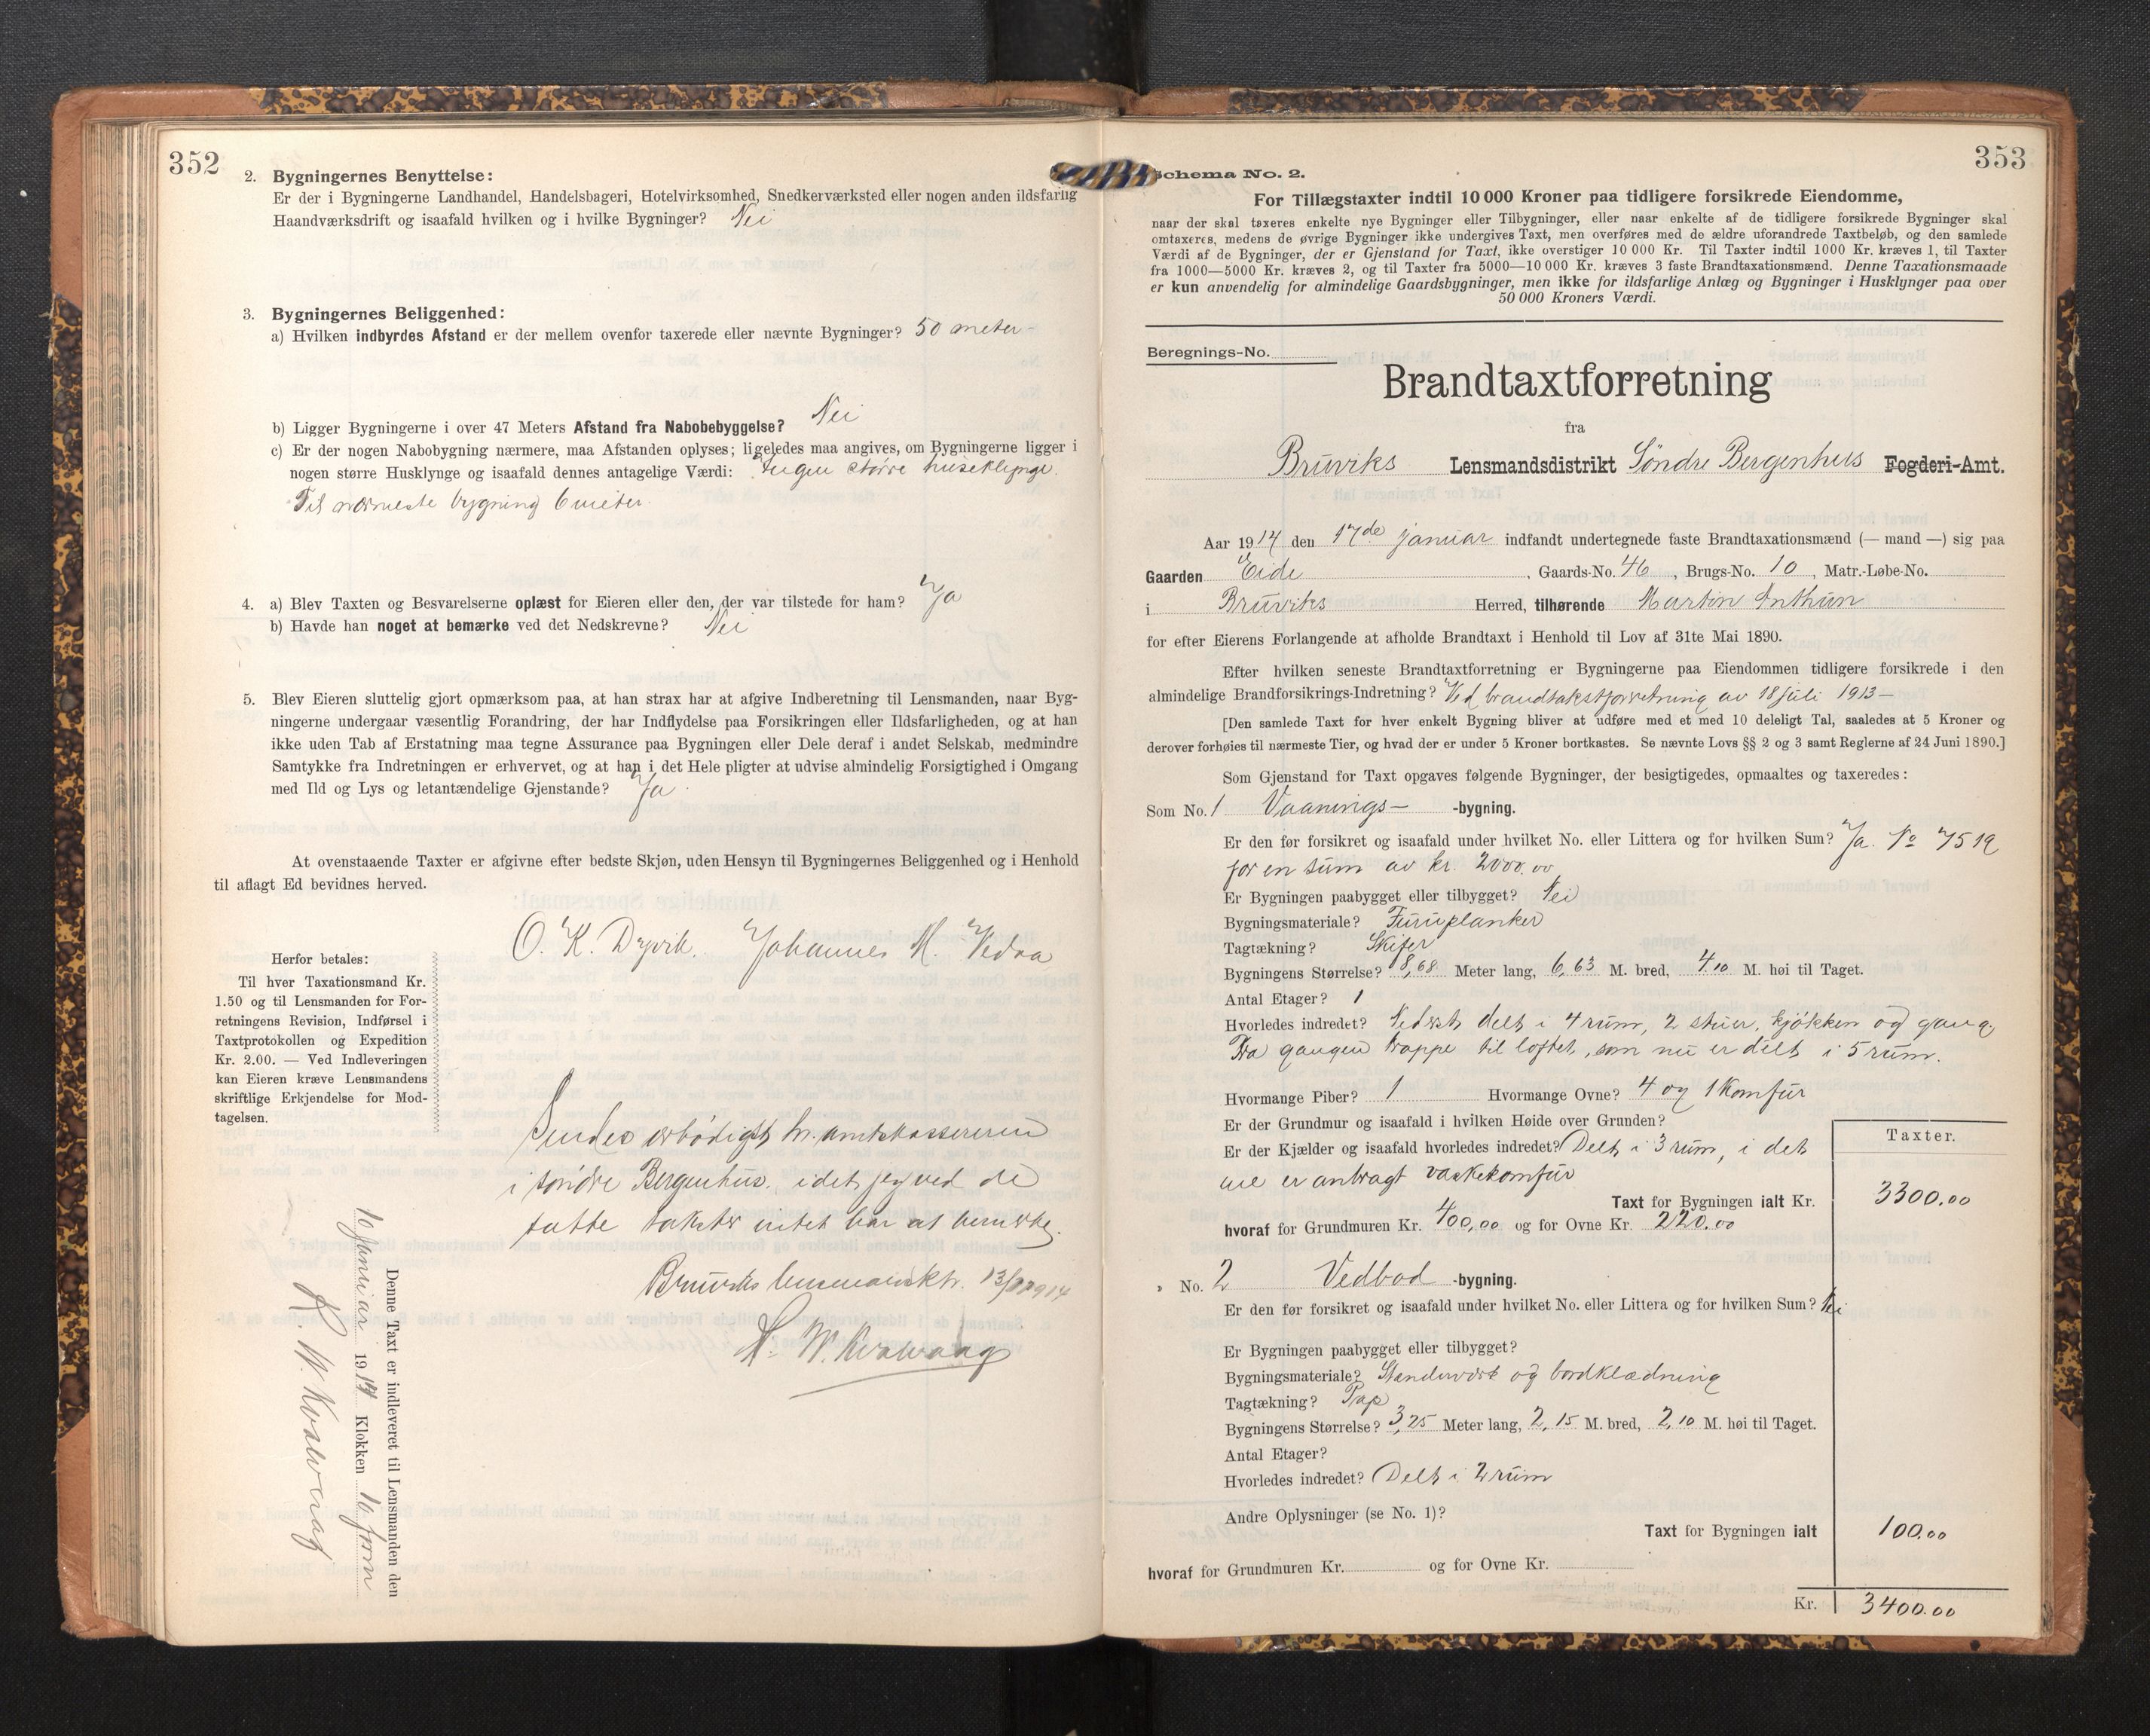 352
2. Bygningernes Benyttelse:
Er der i Bygningerne Landhandel, Handelsbageri, Hotelvirksomhed, Snedkerværksted eller nogen anden ildsfarlig
Haandværksdrift og isaafald hvilken og i hvilke Bygninger? Nei
3. Bygningernes Beliggenhed:
a) Hvilken indbyrdes Afstand er der mellem ovenfor taxerede eller nævnte Bygninger? 50 meter-
b) Ligger Bygningerne i over 47 Meters Afstand fra Nabobebyggelse? Nei
c) Er der nogen Nabobygning nærmere, maa Afstanden oplyses; ligeledes maa angives, om Bygningerne ligger i
nogen større Husklynge og isaafald dennes antagelige Værdi: Ingen større huseklynge.
Til nærmeste bygning 6 meter.
4. a) Blev Taxten og Besvarelserne oplæst for Eieren eller den, der var tilstede for ham? Ja
b) Havde han noget at bemærke ved det Nedskrevne? Nei
5. Blev Eieren sluttelig gjort opmærksom paa, at han strax har at afgive Indberetning til Lensmanden, naar Byg-
ningerne undergaar væsentlig Forandring, der har Indflydelse paa Forsikringen eller Ildsfarligheden, og at han
ikke uden Tab af Erstatning maa tegne Assurance paa Bygningen eller Dele deraf i andet Selskab, medmindre
Samtykke fra Indretningen er erhvervet, og at han i det Hele pligter at udvise almindelig Forsigtighed i Omgang
med Ild og Lys og letantændelige Gjenstande? Ja.
At ovenstaaende Taxter er afgivne efter bedste Skjøn, uden Hensyn til Bygningernes Beliggenhed og i Henhold
til aflagt Ed bevidnes herved.
O. K. Dyvik. Johannes M. Vedaa
Herfor betales:
Til hver Taxationsmand Kr.
1.50 og til Lensmanden for For-
retningens Revision, Indførsel i
Taxtprotokollen og Expedition
Kr. 2.00. — Ved Indleveringen
kan Eieren kræve Lensmandens
skriftlige Erkjendelse for Mod-
tagelsen.
Sendes ærbødigst hr. amtskassereren
i søndre Bergenhus. idet jeg ved de
satte takster intet har at bemerke.
Bruviks lensmandsktr. 1914
H. W. Kvalvaag
Denne Taxt er indleveret til Lensmanden den
10 januar 1914 Klokken 10 form
H. W. Kvalvaag
353
Schema No. 2.
For Tillægstaxter indtil 10 000 Kroner paa tidligere forsikrede Eiendomme,
naar der skal taxeres enkelte nye Bygninger eller Tilbygninger, eller naar enkelte af de tidligere forsikrede Bygninger skal
omtaxeres, medens de øvrige Bygninger ikke undergives Taxt, men overføres med de ældre uforandrede Taxtbeløb, og den samlede
Værdi af de Bygninger, der er Gjenstand for Taxt, ikke overstiger 10 000 Kr. Til Taxter indtil 1000 Kr. kræves 1, til Taxter
fra 1000—5000 Kr. kræves 2, og til Taxter fra 5000—10 000 Kr. kræves 3 faste Brandtaxationsmænd. Denne Taxationsmaade
er kun anvendelig for almindelige Gaardsbygninger, men ikke for ildsfarlige Anlæg og Bygninger i Husklynger paa over
50 000 Kroners Værdi.
Beregnings-No.
Brandtaxtforretning
fra
Bruviks Lensmandsdistrikt Søndre Bergenhus Fogderi-Amt.
Aar 1914 den januar indfandt undertegnede faste Brandtaxationsmænd (— mand —) sig paa
Gaarden Eide, Gaards-No. 46, Brugs-No. 10, Matr.-Løbe-No.
i Bruviks Herred, tilhørende Martin Anthun
for efter Eierens Forlangende at afholde Brandtaxt i Henhold til Lov af 31te Mai 1890.
Efter hvilken seneste Brandtaxtforretning er Bygningerne paa Eiendommen tidligere forsikrede i den
almindelige Brandforsikrings-Indretning? Ved brandtakstforretning av 18 juli 1913—
[Den samlede Taxt for hver enkelt Bygning bliver at udføre med et med 10 deleligt Tal, saaledes at 5 Kroner og
derover forhøies til nærmeste Tier, og hvad der er under 5 Kroner bortkastes. Se nævnte Lovs §§ 2 og 3 samt Reglerne af 24 Juni 1890.]
Som Gjenstand for Taxt opgaves følgende Bygninger, der besigtigedes, opmaaltes og taxeredes:
Som No. 1 Vaanings- -bygning.
Er den før forsikret og isaafald under hvilket No. eller Littera og for hvilken Sum? Ja. No
for en sum av kr. 2000.00
Er Bygningen paabygget eller tilbygget? Nei
Bygningsmateriale? Furuplanker
Tagtækning? Skifer
Bygningens Størrelse? 8,68 Meter lang, 6,63 M. bred, 4.10 M. høi til Taget.
Antal Etager? 1
Hvorledes indredet? Nederst delt i 4 rum, 2 stuer, kjøkken og gang.
Fra gangen trappe til loftet, som nu er delt i 5 rum.
Hvormange Piber? 1 Hvormange Ovne? 4 og 1 komfur
Er der Grundmur og isaafald i hvilken Høide over Grunden?
Er der Kjælder og isaafald hvorledes indredet? Delt i 3 rum, i det
ene er anbragt vaskekomfur
Taxter.
Taxt for Bygningen ialt Kr. 3300.00
hvoraf for Grundmuren Kr. 400,00 og for Ovne Kr. 220.00
No. 2 Vedbod -bygning.
Er den før forsikret og isaafald under hvilket No. eller Littera og for hvilken Sum? Nei
Er Bygningen paabygget eller tilbygget?
Bygningsmateriale? Stenderverk og bordklædning
Tagtækning? Pap
Bygningens Størrelse? 3,25 Meter lang, 2,15 M. bred, 2,10 M. høi til Taget.
Antal Etager?
Hvorledes indredet? Delt i 2 rum
Andre Oplysninger (se No. 1)?
Taxt for Bygningen ialt 100.00
hvoraf for Grundmuren Kr. og for Ovne Kr.
Kr. 3400.00